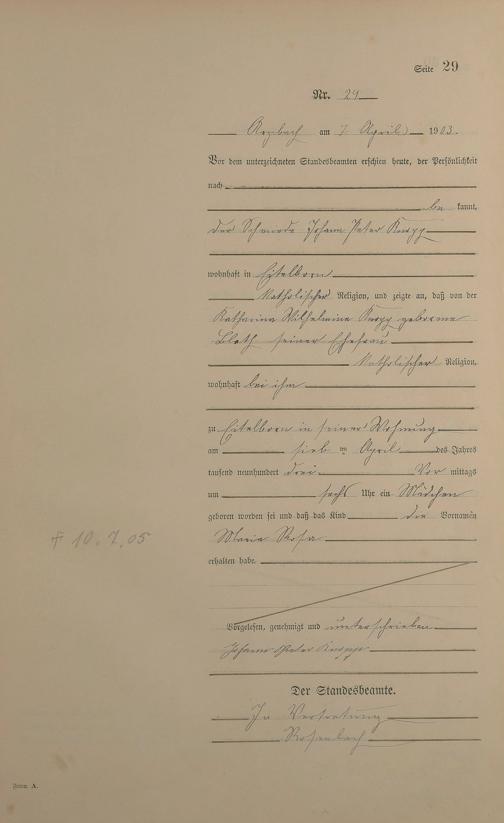 Seite 29
Nr. 29
Arzbach am 7 April 1903.
Vor dem unterzeichneten Standesbeamten erschien heute, der Persönlichkeit
nach
be kannt,
der Johann Peter Knopp
wohnhaft in Eitelborn
katholischer Religion, und zeigte an, daß von der
Katharina Wilhelmine Knopp geborene
Bloth seiner Ehefrau
katholischer Religion,
wohnhaft bei ihm
zu Eitelborn in seiner Wohnung
am sieb ten April des Jahres
tausend neunhundert drei Vor mittags
um sechs Uhr ein Mädchen
geboren worden sei und daß das Kind die Vornamen
Maria Rosa
erhalten habe.
† 10.7.05
Vorgelesen, genehmigt und unterschrieben
Johann Peter Knopp
Der Standesbeamte.
In Vertretung
Rosenbach
Form A.